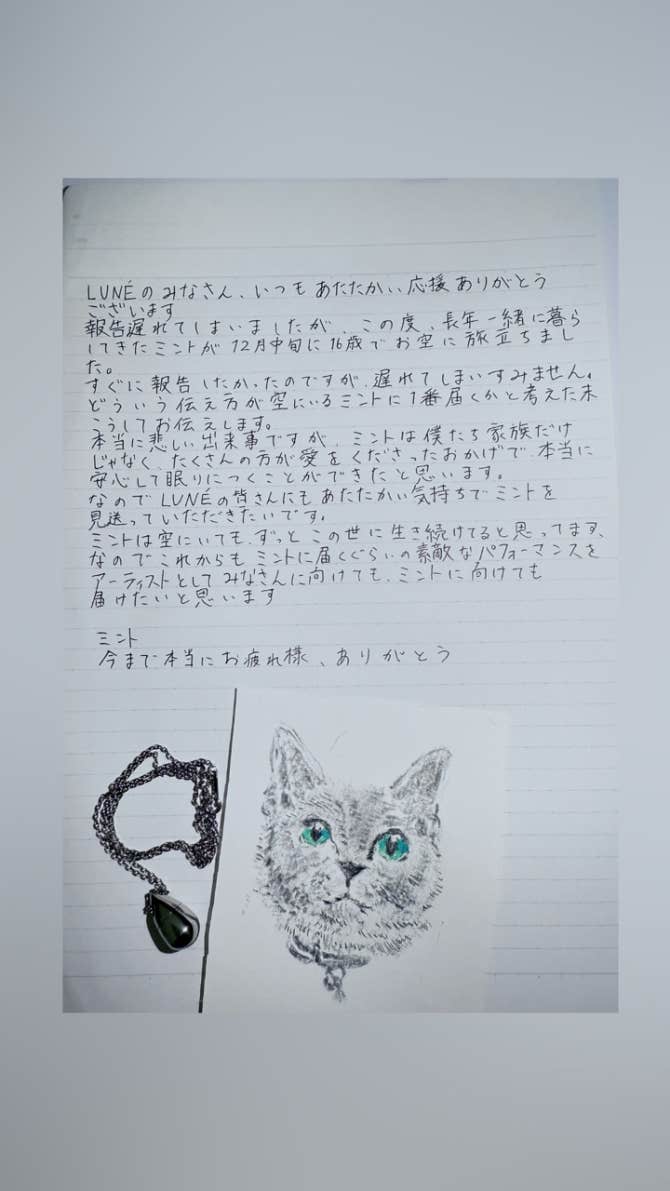 LUNÉのみなさん、いつもあたたかい応援ありがとう
ございます
報告遅れてしまいましたが、この度、長年一緒に暮ら
してきたミントが12月中旬に16歳でお空に旅立ちまし
た。
すぐに報告したかったのですが、遅れてしまいすみません。
どういう伝え方が空にいるミントに1番届くかと考えた末
こうしてお伝えします。
本当に悲しい出来事ですが、ミントは僕たち家族だけ
じゃなく、たくさんの方が愛をくださったおかげで、本当に
安心して眠りにつくことができたと思います。
なのでLUNÉの皆さんにもあたたかい気持ちでミントを
見送っていただきたいです。
ミントは空にいても、ずっとこの世に生き続けてると思ってます、
なのでこれからもミントに届くぐらいの素敵なパフォーマンスを
アーティストとしてみなさんに向けても、ミントに向けても
届けたいと思います
ミント
今まで本当にお疲れ様、ありがとう